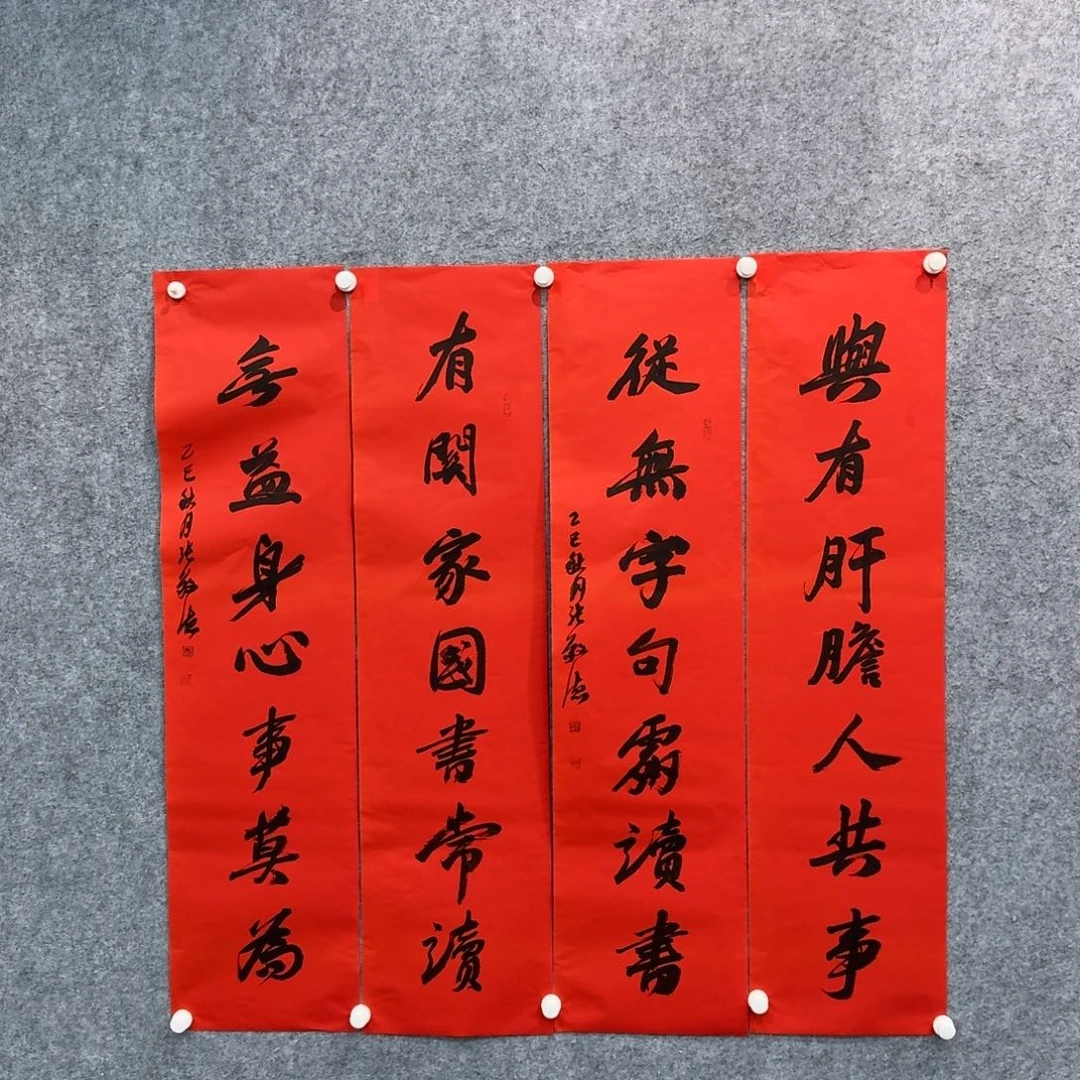 與有肝膽人共事
從無字句處讀書
乙巳秋月張
有關家國書常讀
無益身心事莫為
乙巳秋月張